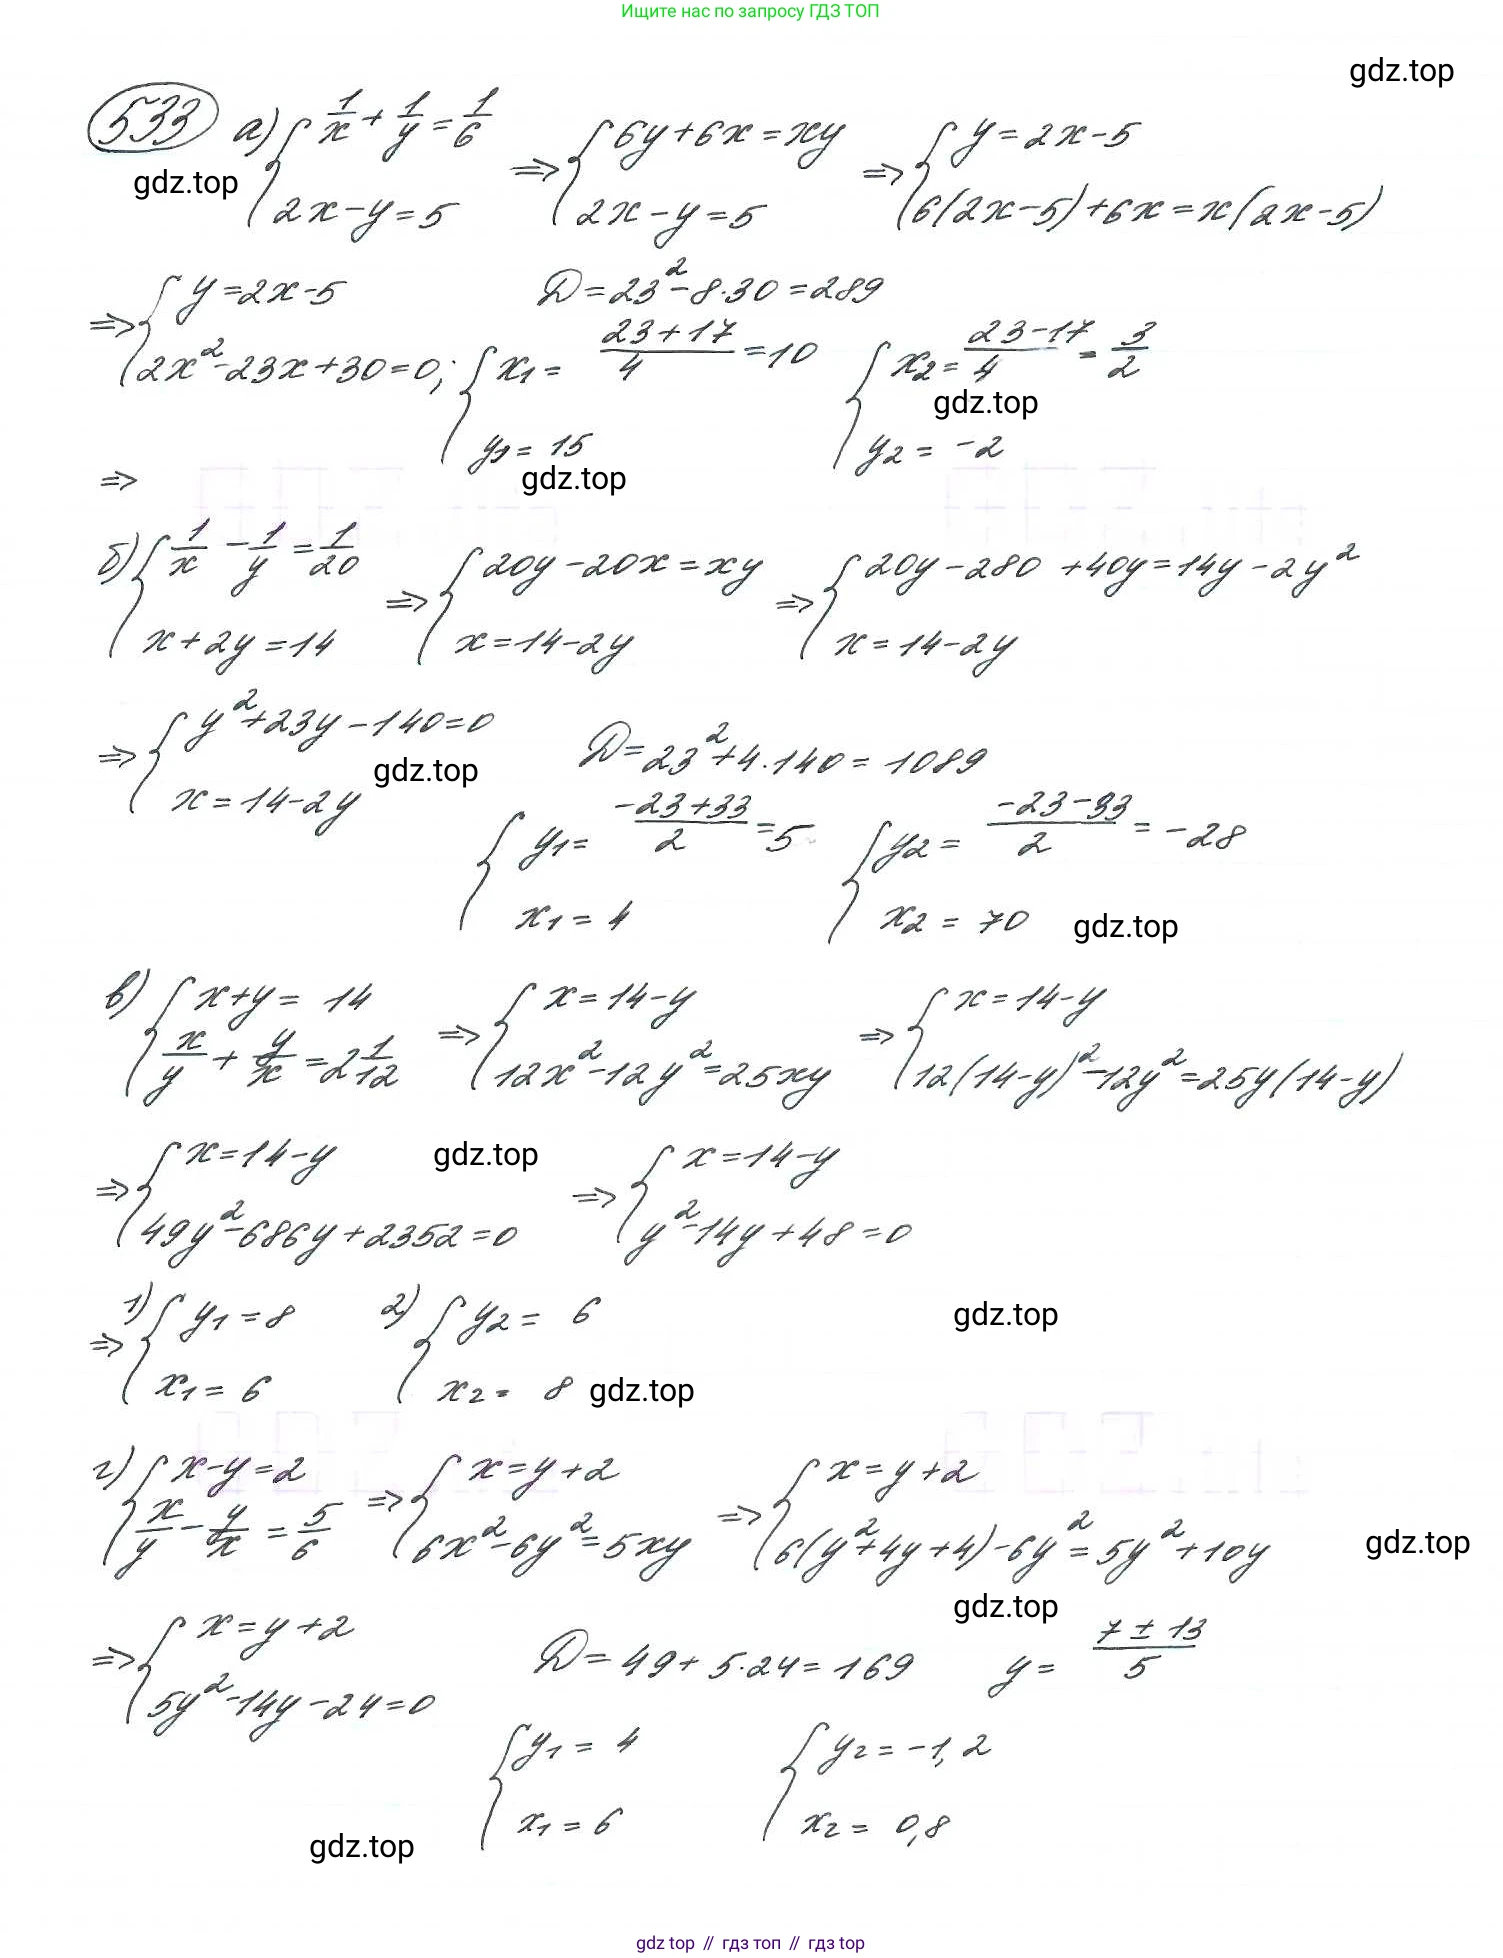 Ищите нас по запросу ГДЗ ТОП
gdz.top
533 а) { 1/x + 1/y = 1/6 ; 2x - y = 5 => { 6y + 6x = xy ; 2x - y = 5 => { y = 2x - 5 ; 6(2x - 5) + 6x = x(2x - 5)
gdz.top
=> { y = 2x - 5 ; 2x² - 23x + 30 = 0; D = 23² - 8·30 = 289
{ x₁ = (23 + 17)/4 = 10 ; y₁ = 15 { x₂ = (23 - 17)/4 = 3/2 ; y₂ = -2
gdz.top
gdz.top
=>
б) { 1/x - 1/y = 1/20 ; x + 2y = 14 => { 20y - 20x = xy ; x = 14 - 2y => { 20y - 280 + 40y = 14y - 2y² ; x = 14 - 2y
=> { y² + 23y - 140 = 0 ; x = 14 - 2y D = 23² + 4·140 = 1089
gdz.top
{ y₁ = (-23 + 33)/2 = 5 ; x₁ = 4 { y₂ = (-23 - 33)/2 = -28 ; x₂ = 70
gdz.top
в) { x + y = 14 ; x/y + y/x = 2 1/12 => { x = 14 - y ; 12x² - 12y² = 25xy => { x = 14 - y ; 12(14 - y)² - 12y² = 25y(14 - y)
=> { x = 14 - y ; 49y² - 686y + 2352 = 0 => { x = 14 - y ; y² - 14y + 48 = 0
gdz.top
=> 1) { y₁ = 8 ; x₁ = 6 2) { y₂ = 6 ; x₂ = 8
gdz.top
gdz.top
г) { x - y = 2 ; x/y - y/x = 5/6 => { x = y + 2 ; 6x² - 6y² = 5xy => { x = y + 2 ; 6(y² + 4y + 4) - 6y² = 5y² + 10y
gdz.top
gdz.top
=> { x = y + 2 ; 5y² - 14y - 24 = 0 D = 49 + 5·24 = 169 y = (7 ± 13)/5
{ y₁ = 4 ; x₁ = 6 { y₂ = -1,2 ; x₂ = 0,8
gdz.top
gdz top // гдз топ // гдз top